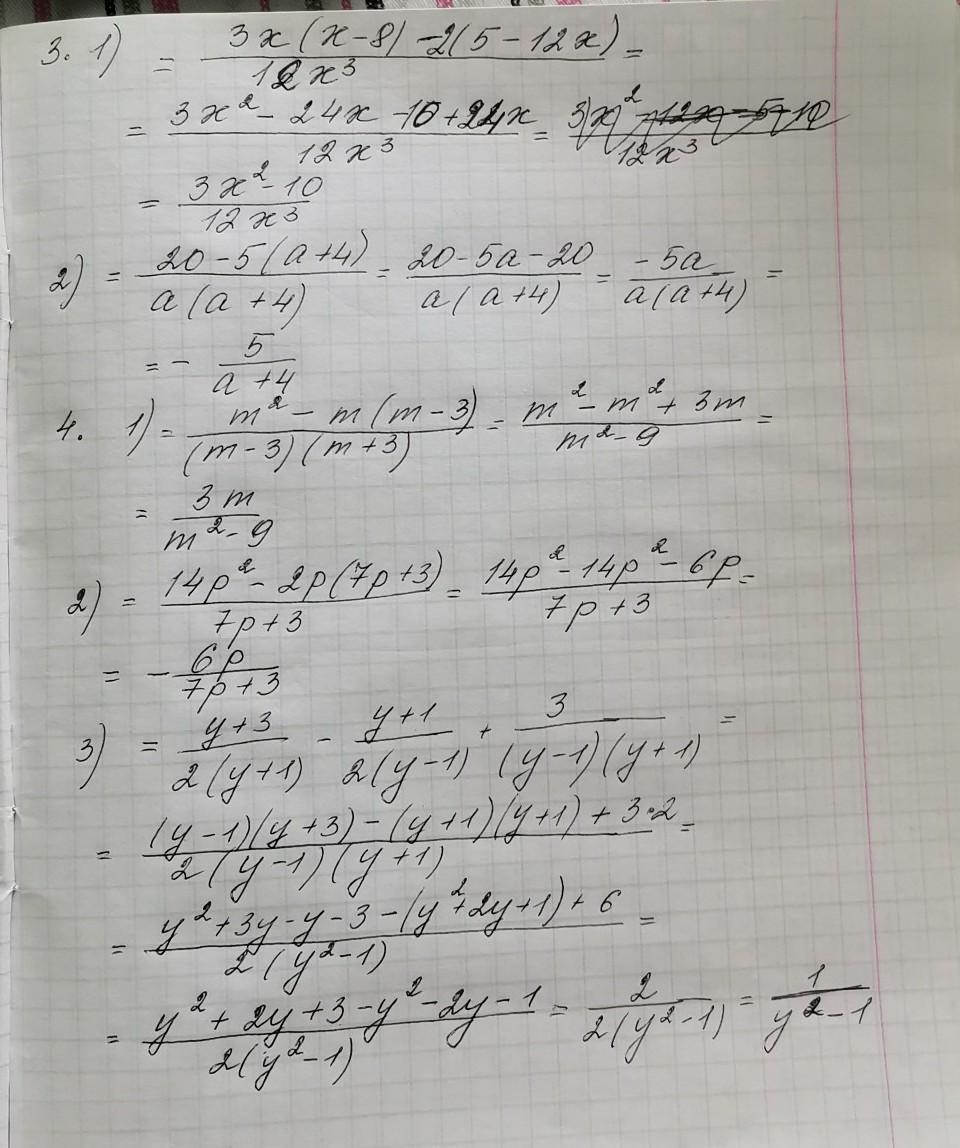 3. 1) = (3x(x-8)-2(5-12x))/(12x³) =
= (3x²-24x-10+24x)/(12x³) =
= (3x²-10)/(12x³)
2) = (20-5(a+4))/(a(a+4)) = (20-5a-20)/(a(a+4)) = (-5a)/(a(a+4)) =
= - 5/(a+4)
4. 1) = (m²-m(m-3))/((m-3)(m+3)) = (m²-m²+3m)/(m²-9) =
= 3m/(m²-9)
2) = (14p²-2p(7p+3))/(7p+3) = (14p²-14p²-6p)/(7p+3) =
= - 6p/(7p+3)
3) = (y+3)/(2(y+1)) - (y+1)/(2(y-1)) + 3/((y-1)(y+1)) =
= ((y-1)(y+3)-(y+1)(y+1)+3·2)/(2(y-1)(y+1)) =
= (y²+3y-y-3-(y²+2y+1)+6)/(2(y²-1)) =
= (y²+2y+3-y²-2y-1)/(2(y²-1)) = 2/(2(y²-1)) = 1/(y²-1)